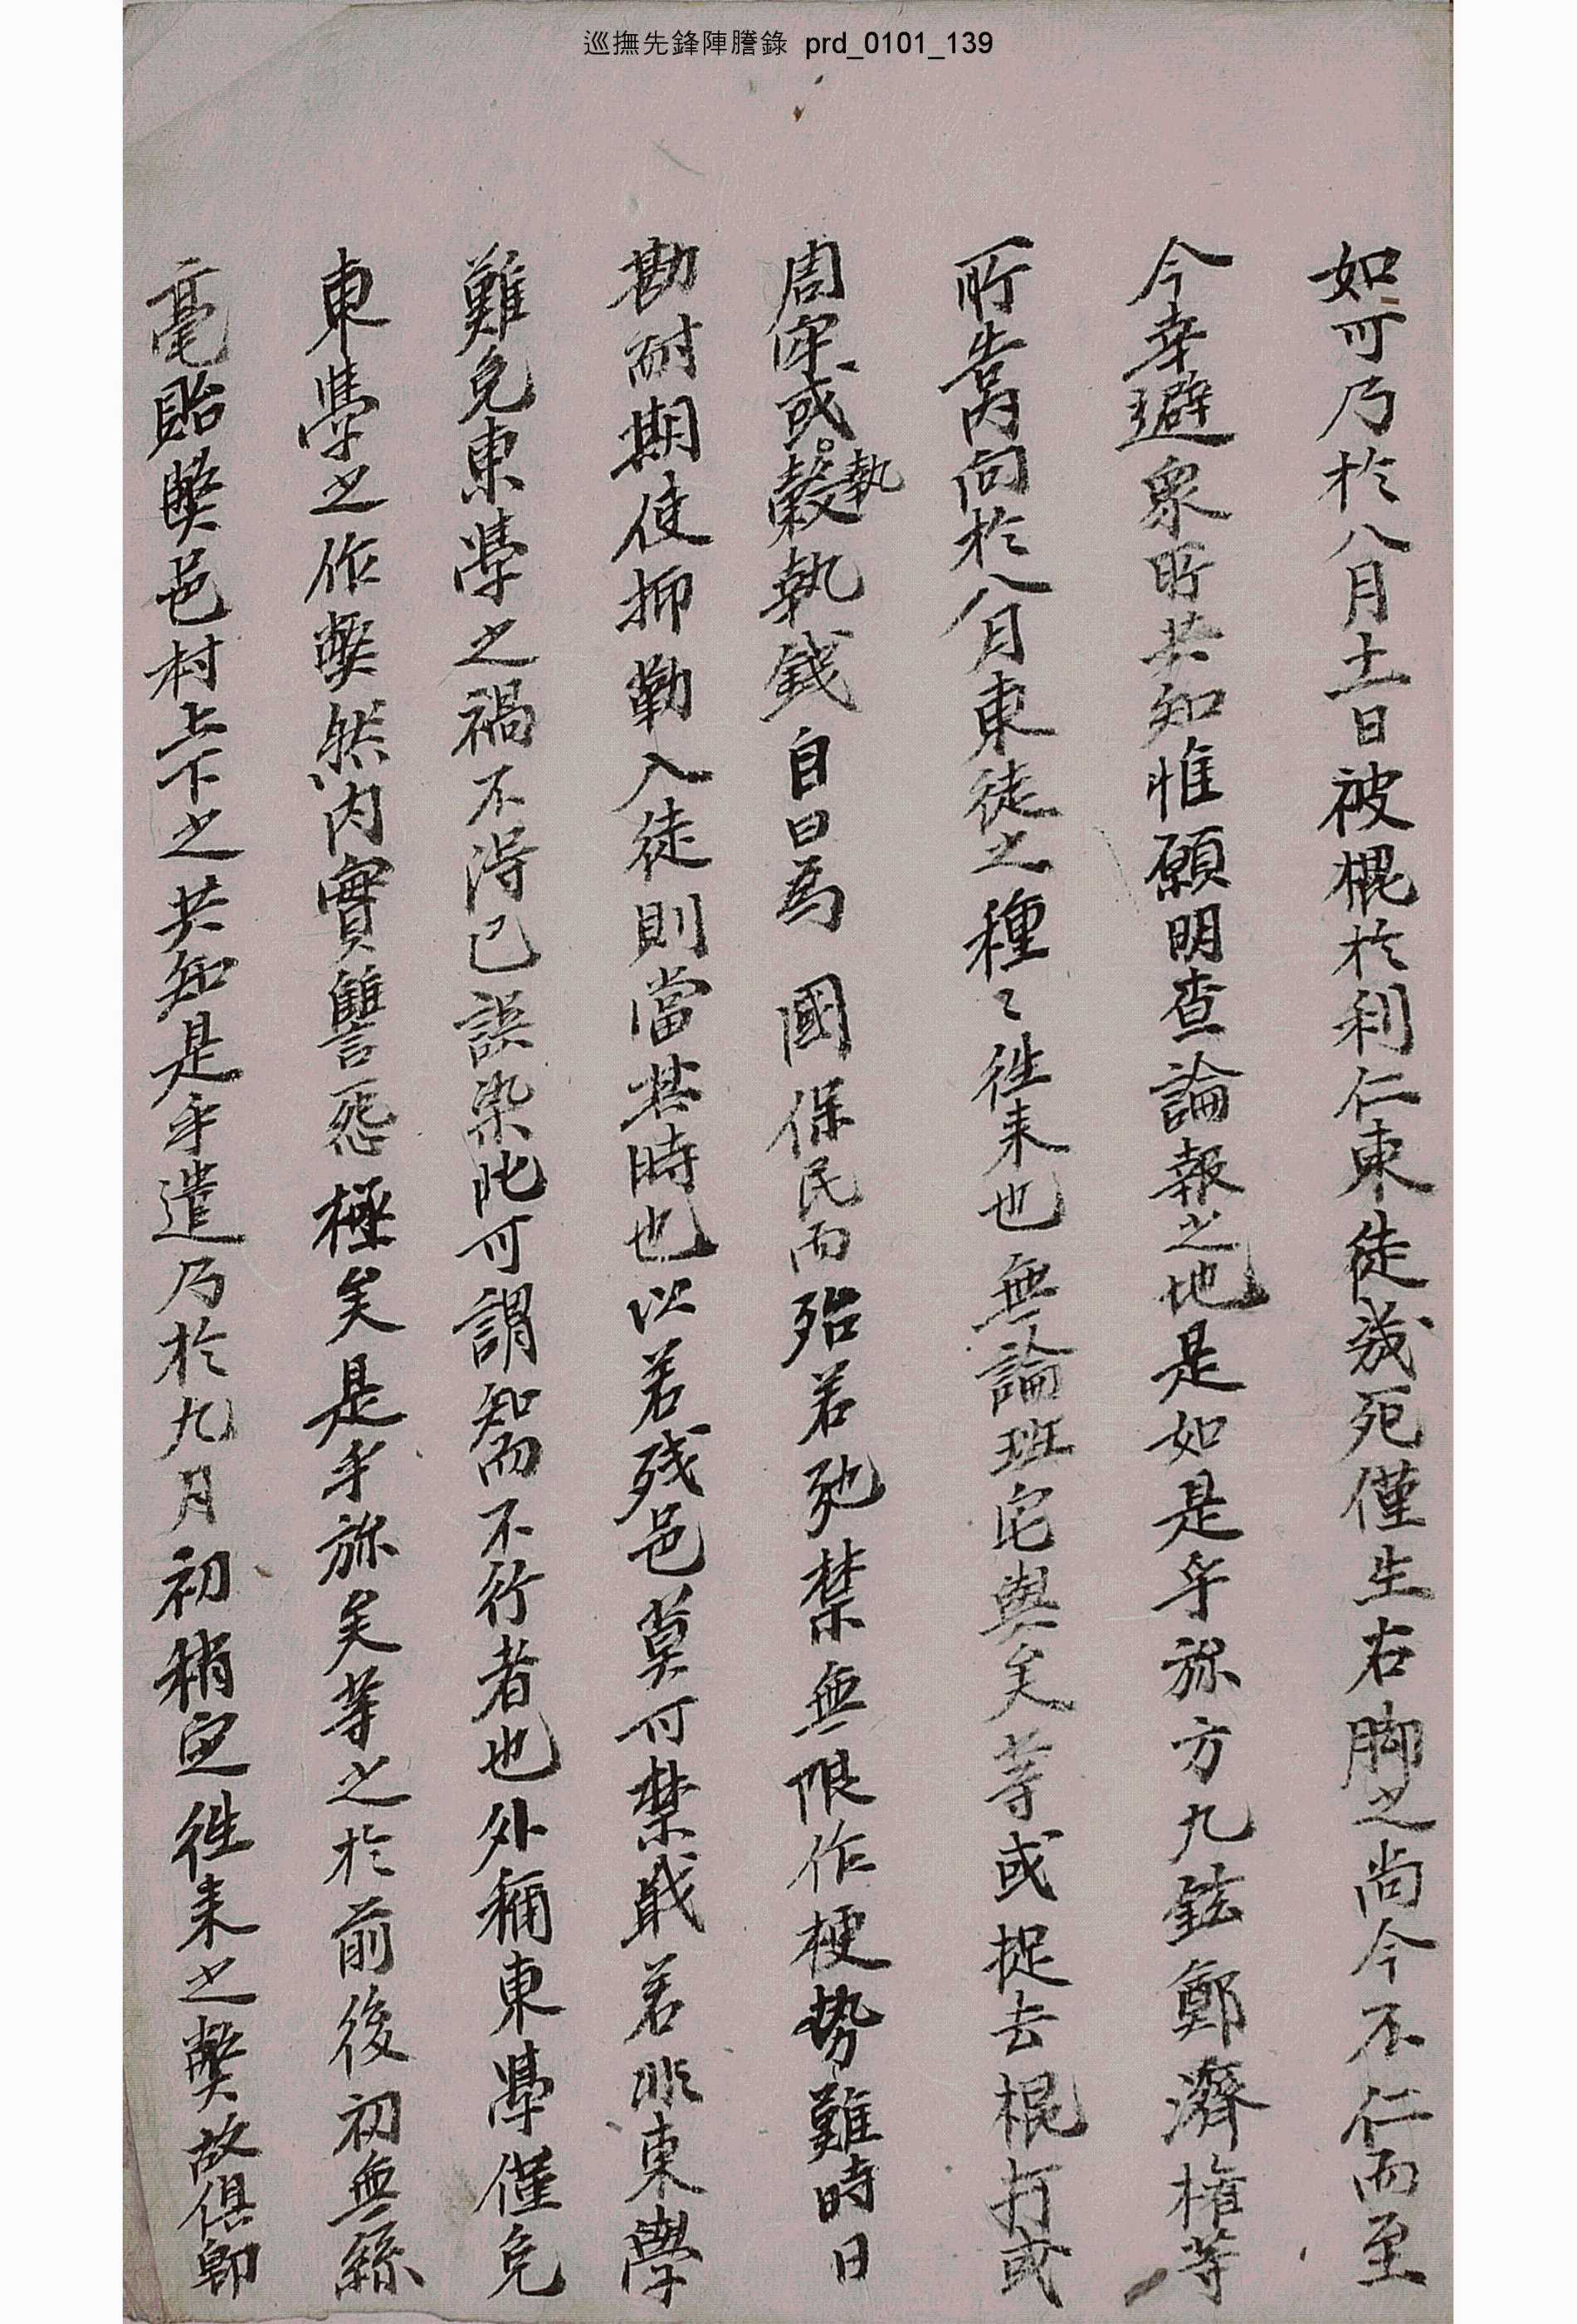 巡撫先鋒陣謄錄 prd_0101_139
如可乃於八月十一日被棍於利仁東徒幾死僅生右脚之尚今不仁而至
今幸避衆所共知惟願明查論報之地是如是乎旀方九鉉鄭濟權等
所告內向於八月東徒之種々往来也無論班宅與矣等或捉去棍打或
周牢或穀執執錢自曰爲 國保民而殆若弛禁無限作梗勢難時日
勘耐期使抑勒入徒則當其時也以若残邑莫可禁戢若非東學
難免東學之禍不得已誤染此可謂知而不行者也外稱東學僅免
東學之作弊然內實讐怨極矣是乎旀矣等之於前後初無絲
毫貽弊邑村上下之共知是乎遣乃於九月初稍定往来之弊故俱卽